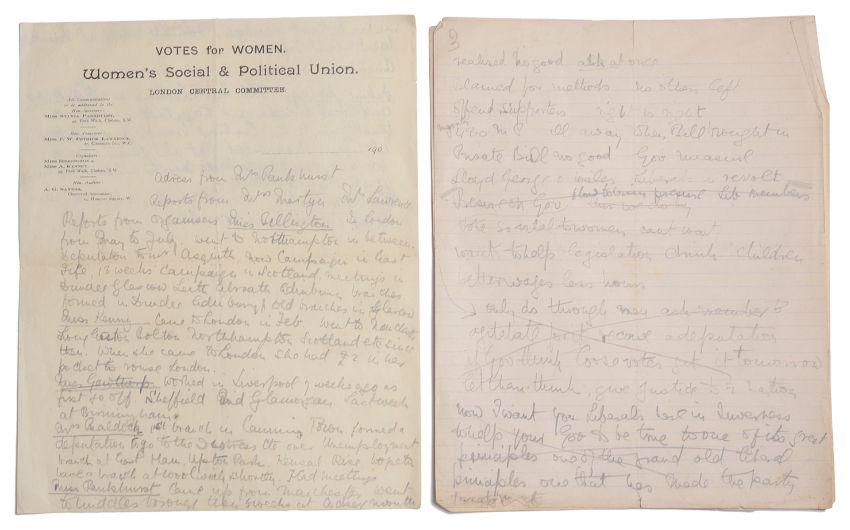 VOTES for WOMEN.
Women's Social & Political Union.
LONDON CENTRAL COMMITTEE.
All Communications
to be addressed to the
Hon. Secretary:
MISS SYLVIA PANKHURST,
Park Walk, Chelsea, S.W.
Hon. Treasurer:
MRS. F. W. PETHICK LAWRENCE,
Clement's Inn, W.C.
Organisers:
MISS BILLINGTON &
MISS A. KENNEY,
Park Walk, Chelsea, S.W.
Hon. Auditor:
A. G. SAYERS,
Chartered Accountant,
Hanover Square, W.
190
Adress from Mrs Pankhurst
Reports from Mrs Martyn Mrs Lawrence
Reports from organisers Miss Billington in London
from May to July went to Northampton in between.
Deputation to Mr Asquith now Campaign in East
Fife, 13 weeks campaign in Scotland meetings in
Dundee Glasgow Leith Abroath Edinburg branches
formed in Dundee Edinburg & old branches in Glasgow
Miss Kenny Came to London in Feb went to Manchester
Bolton Northampton Scotland etc since
then. When she came to London she had £2 in her
pocket to rouse London.
Miss Gawthorpe worked in Liverpool 7 weeks ago as
first go off Sheffield and Glamorgan last week
at Birmingham
Mrs Baldock 1st branch in Canning Town formed a
deputation to go to the over Unemployment
branch at East Ham Upton Park, Kensal Rise hope to
have a branch at shortly Had meetings
Miss Pankhurst Came up from Manchester went
to Middlesborough then 3 weeks at
3
realised no good at once
blamed for methods no other left
offend supporters right is right
Gov ill away when Bill brought in
Private Bill no good Gov Measure
Lloyd George revolt
Pressure on Gov How to bring pressure Lib members
Vote so vital to women cant wait
want to help legislation drink children
better wages less hours
only do through
agitate wont receive a deputation
if Gov think loose votes get it tomorrow
let them think, give justice to nation
Now I want you Liberals here in Inverness
to help your Gov to be true to one of its great
principles one of the grand old liberal
principles one that has made the party